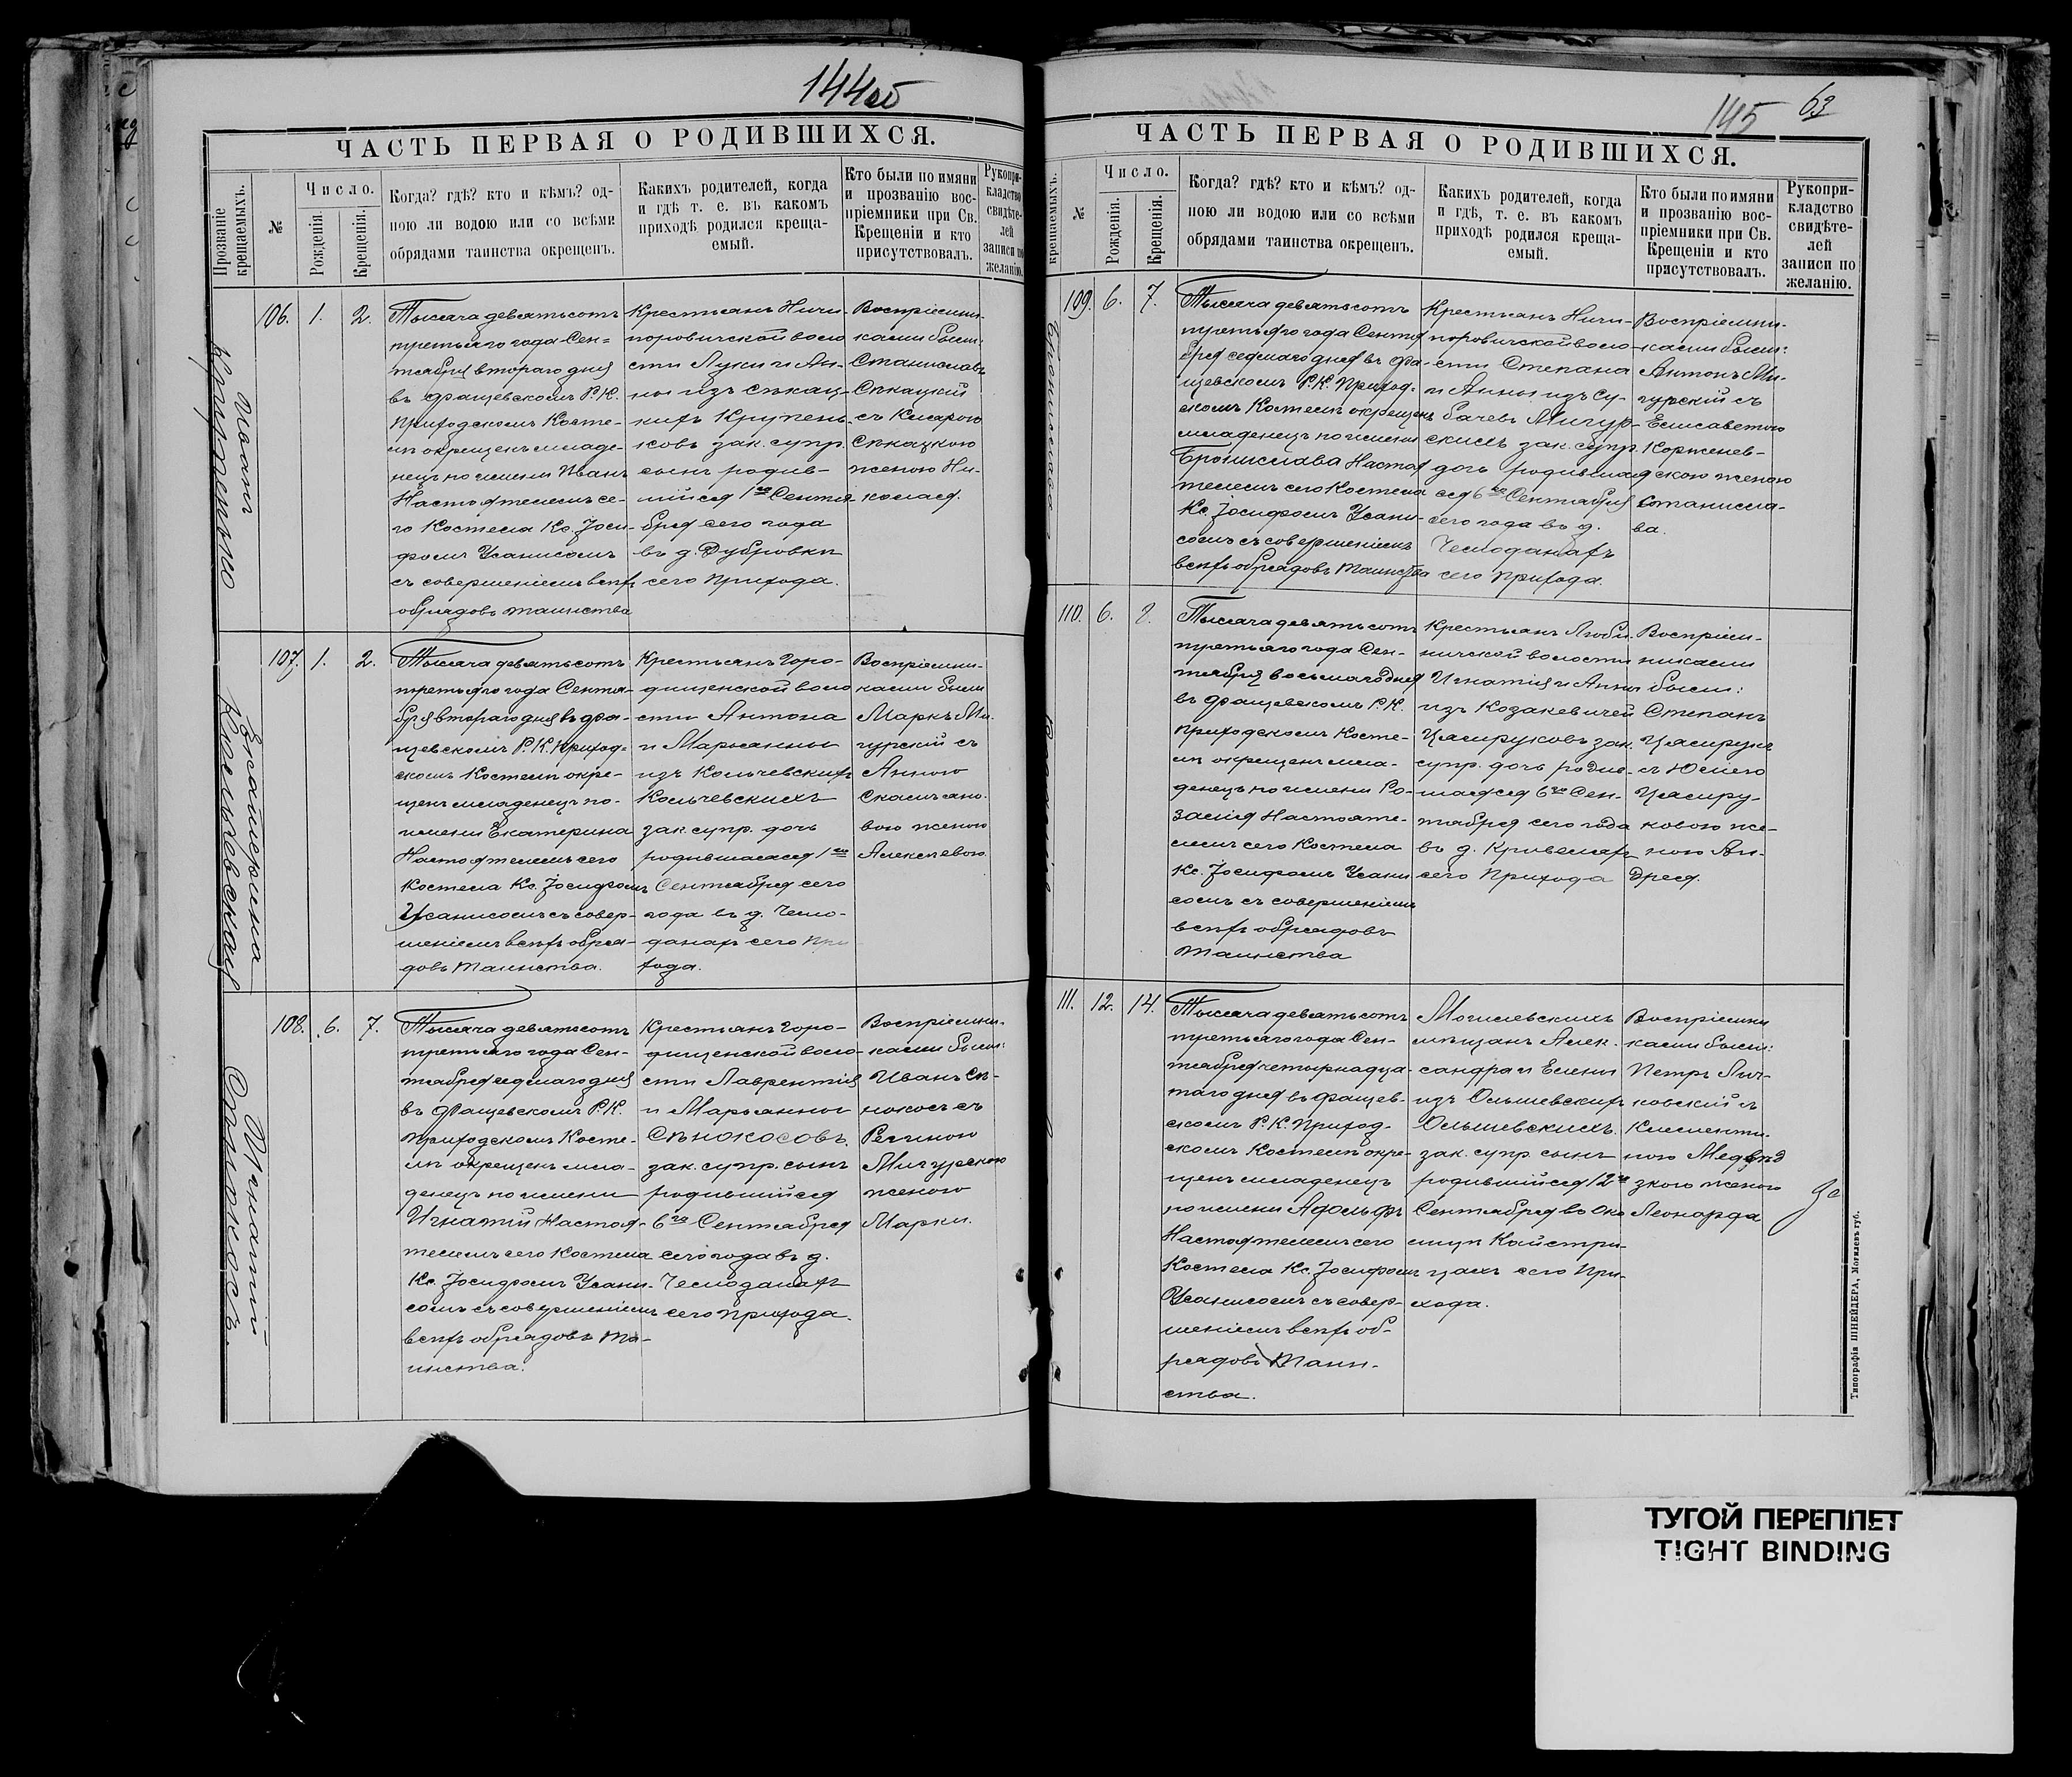 144об
ЧАСТЬ ПЕРВАЯ О РОДИВШИХСЯ.
Прозваніе крещаемыхъ.
№
Число.
Рожденія.
Крещенія.
Когда? гдѣ? кто и кѣмъ? од-
ною ли водою или со всѣми
обрядами таинства окрещенъ.
Какихъ родителей, когда
и гдѣ т. е. въ какомъ
приходѣ родился креща-
емый.
Кто были по имяни
и прозванію вос-
пріемники при Св.
Крещеніи и кто
присутствовалъ.
Рукопри-
кладство
свидѣте-
лей
записи по
желанію.
Иоаннъ
106. 1. 2.
Тысяча девятьсотъ
третьяго года Сен=
тября втораго дня
въ Фащевскомъ Р.К.
Приходскомъ Косте-
лѣ окрещенъ младе-
нецъ по имени Иванъ
Настоятелемъ се-
го Костела Кс. Іоси-
фомъ Усанисомъ
съ совершеніемъ всѣхъ
обрядовъ таинства
Крестьянъ Ничи-
поровичской воло
сти Луки и Ан-
ны изъ Сѣкац-
кихъ Крупень-
ковъ зак. супр.
сынъ родив-
шійся 1го Сентя
бря сего года
въ д. Дубровкѣ
сего Прихода.
Воспріемни-
ками были:
Станиславъ
Сѣкацкій
съ Кларою
Сѣкацкою
женою Ни-
колая.
Екатерина
Кольчевская
107. 1. 2.
Тысяча девятьсотъ
третьяго года Сентя-
бря втораго дня въ Фа-
щевскомъ Р.К. Приход-
скомъ Костелѣ окре-
щенъ младенецъ по-
имени Екатерина
Настоятелемъ сего
Костела Кс. Іосифомъ
Усанисомъ съ совер-
шеніемъ всѣхъ обря-
довъ Таинства.
Крестьянъ Горо-
дищенской воло
сти Антона
и Марьянны
изъ Кольчевскихъ
Кольчевскихъ
зак. супр. дочь
родившаяся 1го
Сентября сего
года въ д. Чемо-
данахъ сего При
хода.
Воспріемни-
ками были
Маркъ Ми-
гурскій съ
Анною
вою женою
Алексѣевою.
Игнатій
Сѣнокосъ.
108. 6. 7.
Тысяча девятьсотъ
третьяго года Сен-
тября седьмаго дня
въ Фащевскомъ Р.К.
Приходскомъ Косте-
лѣ окрещенъ мла-
денецъ по имени
Игнатій Настоя-
телемъ сего Костела
Кс. Іосифомъ Усани-
сомъ съ совершеніемъ
всѣхъ обрядовъ Та-
инства.
Крестьянъ Горо-
дищенской воло-
сти Лаврентія
и Марьянны
Сѣнокосовъ.
зак. супр. сынъ
родившійся
6го Сентября
сего года въ д.
Чемоданахъ
сего Прихода.
Воспріемни-
ками были:
Иванъ Сѣ-
нокосъ съ
Региною
Мигурскою
женою
Марки.
145 63
ЧАСТЬ ПЕРВАЯ О РОДИВШИХСЯ.
крещаемыхъ.
№
Число.
Рожденія.
Крещенія.
Когда? гдѣ? кто и кѣмъ? од-
ною ли водою или со всѣми
обрядами таинства окрещенъ.
Какихъ родителей, когда
и гдѣ, т. е. въ какомъ
приходѣ родился креща-
емый.
Кто были по имяни
и прозванію вос-
пріемники при Св.
Крещеніи и кто
присутствовалъ.
Рукопри-
кладство
свидѣте-
лей
записи по
желанію.
Бронислава
109. 6. 7.
Тысяча девятьсотъ
третьяго года Сентя
бря седьмаго дня въ Фа-
щевскомъ Р.К. Приход-
скомъ Костелѣ окрещенъ
младенецъ по имени
Бронислава Настоя
телемъ сего Костела
Кс. Іосифомъ Усани-
сомъ съ совершеніемъ
всѣхъ обрядовъ Таинства
Крестьянъ Ничи-
поровичской воло-
сти Степана
и Анны изъ Су-
бачевъ Мигур-
скихъ зак. супр.
дочь родивша
яся 6го Сентября
сего года въ д.
Чемоданахъ
сего Прихода.
Воспріемни-
ками были:
Антонъ Ми-
гурскій съ
Елисаветою
Корженев-
скою женою
Станисла-
ва.
110. 6. 8.
Тысяча девятьсотъ
третьяго года Сен-
тября восьмаго дня
въ Фащевскомъ Р.К.
Приходскомъ Косте-
лѣ окрещенъ мла-
денецъ по имени Ро-
залія Настояте-
лемъ сего Костела
Кс. Іосифомъ Усани
сомъ съ совершеніемъ
всѣхъ обрядовъ
Таинства
Крестьянъ Люби-
ничской волости
Игнатія и Анны
изъ Козакевичей
Цямруковъ зак.
супр. дочь родив-
шаяся 6го Сен-
тября сего года
въ д. Кривеляхъ
сего Прихода
Воспріем-
никами
были:
Степанъ
Цямрукъ
съ Юліею
Цямру-
ковою же-
ною Ан-
дрея.
111. 12. 14.
Тысяча девятьсотъ
третьяго года Сен-
тября четырнадца-
таго дня въ Фащев-
скомъ Р.К. Приход-
скомъ Костелѣ окре-
щенъ младенецъ
по имени Адольфъ
Настоятелемъ сего
Костела Кс. Іосифомъ
Усанисомъ съ совер-
шеніемъ всѣхъ об-
рядовъ Таин-
ства.
Могилевскихъ
мѣщанъ Алек-
сандра и Елены
изъ Ольшевскихъ
Ольшевскихъ.
зак. супр. сынъ
родившійся 12го
Сентября въ Око
лицѣ Кайстри-
цахъ сего При-
хода.
Воспріемни
ками были:
Петръ Лич-
ковскій съ
Клементи-
ною Медвѣд
зкою женою
Леонарда
Типографія ШНЕЙДЕРА, Могилевъ губ.
ТУГОЙ ПЕРЕПЛЕТ
TIGHT BINDING